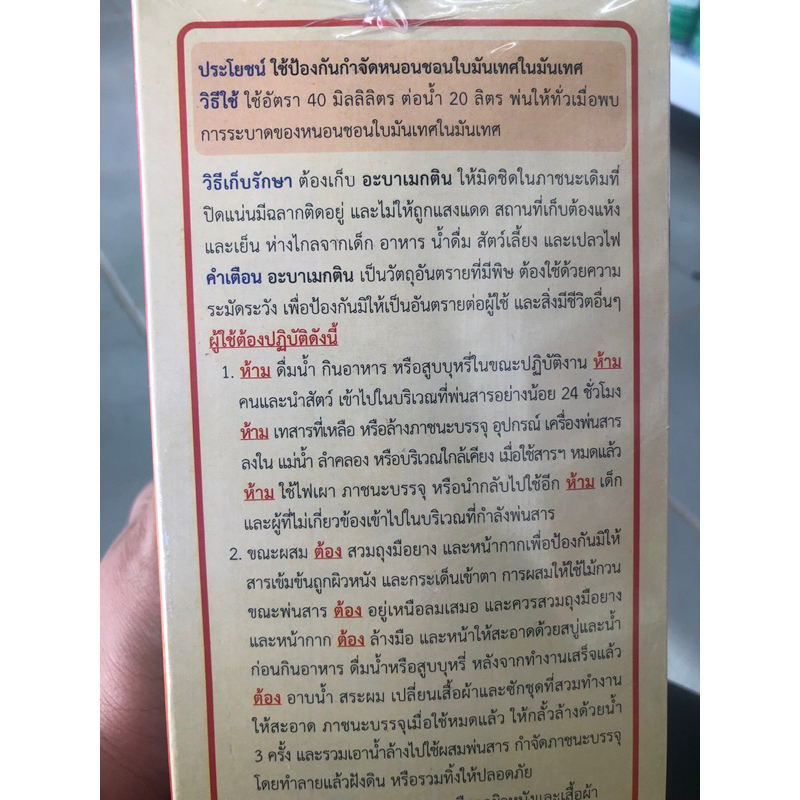 ประโยชน์ ใช้ป้องกันกำจัดหนอนชอนใบมันเทศในมันเทศ
วิธีใช้ ใช้อัตรา 40 มิลลิลิตร ต่อน้ำ 20 ลิตร พ่นให้ทั่วเมื่อพบ
การระบาดของหนอนชอนใบมันเทศในมันเทศ
วิธีเก็บรักษา ต้องเก็บ อะบาเมกติน ให้มิดชิดในภาชนะเดิมที่
ปิดแน่นมีฉลากติดอยู่ และไม่ให้ถูกแสงแดด สถานที่เก็บต้องแห้ง
และเย็น ห่างไกลจากเด็ก อาหาร น้ำดื่ม สัตว์เลี้ยง และเปลวไฟ
คำเตือน อะบาเมกติน เป็นวัตถุอันตรายที่มีพิษ ต้องใช้ด้วยความ
ระมัดระวัง เพื่อป้องกันมิให้เป็นอันตรายต่อผู้ใช้ และสิ่งมีชีวิตอื่นๆ
ผู้ใช้ต้องปฏิบัติดังนี้
1. ห้าม ดื่มน้ำ กินอาหาร หรือสูบบุหรี่ในขณะปฏิบัติงาน ห้าม
คนและนำสัตว์ เข้าไปในบริเวณที่พ่นสารอย่างน้อย 24 ชั่วโมง
ห้าม เทสารที่เหลือ หรือล้างภาชนะบรรจุ อุปกรณ์ เครื่องพ่นสาร
ลงใน แม่น้ำ ลำคลอง หรือบริเวณใกล้เคียง เมื่อใช้สารฯ หมดแล้ว
ห้าม ใช้ไฟเผา ภาชนะบรรจุ หรือนำกลับไปใช้อีก ห้าม เด็ก
และผู้ที่ไม่เกี่ยวข้องเข้าไปในบริเวณที่กำลังพ่นสาร
2. ขณะผสม ต้อง สวมถุงมือยาง และหน้ากากเพื่อป้องกันมิให้
สารเข้มข้นถูกผิวหนัง และกระเด็นเข้าตา การผสมให้ใช้ไม้กวน
ขณะพ่นสาร ต้อง อยู่เหนือลมเสมอ และควรสวมถุงมือยาง
และหน้ากาก ต้อง ล้างมือ และหน้าให้สะอาดด้วยสบู่และน้ำ
ก่อนกินอาหาร ดื่มน้ำหรือสูบบุหรี่ หลังจากทำงานเสร็จแล้ว
ต้อง อาบน้ำ สระผม เปลี่ยนเสื้อผ้าและซักชุดที่สวมทำงาน
ให้สะอาด ภาชนะบรรจุเมื่อใช้หมดแล้ว ให้กลั้วล้างด้วยน้ำ
3 ครั้ง และรวมเอาน้ำล้างไปใช้ผสมพ่นสาร กำจัดภาชนะบรรจุ
โดยทำลายแล้วฝังดิน หรือรวมทิ้งให้ปลอดภัย